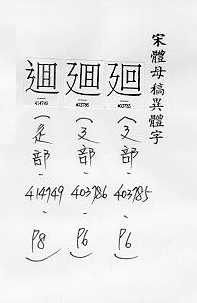 宋體母稿異體字
廻
403785
(廴部-403785-P6)
廽
403786
(廴部-403786-P6)
414749
(辵部-414749-P8)